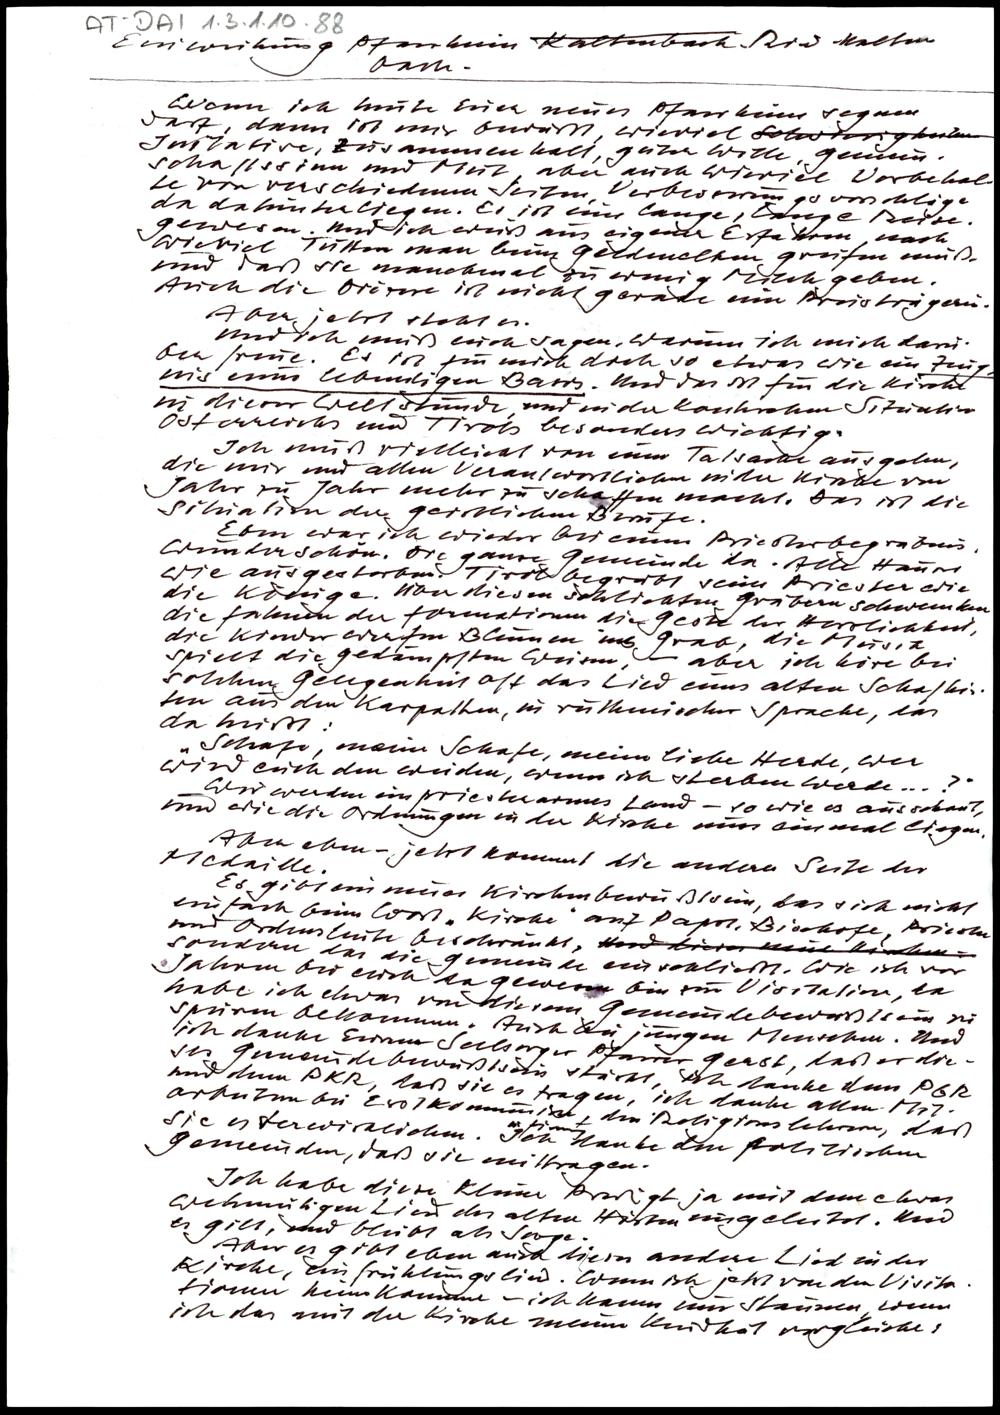 AT-DAI 1.3.1.10.88
Einweihung Pfarrheim Kaltenbach Ried Kalten
bach.
Wenn ich heute Euer neues Pfarrheim segnen
darf, dann ist mir bewußt, wieviel Schwierigkeiten
Initiative, Zusammenhalt, guter Wille, Gemein-
schaftssinn und Mut, aber auch wieviel Vorbehal-
te von verschiedenen Seiten, Verbesserungsvorschläge
da dahinterliegen. Es ist eine lange, lange Reise
gewesen. Und ich weiß aus eigener Erfahrung, nach
wieviel Tutten man beim Geldmelken greifen muß.
und daß sie manchmal zu wenig Milch geben.
Auch die Diözese ist nicht gerade eine Preisträgerin.
Aber jetzt steht es.
Und ich muß euch sagen, warum ich mich darü-
ber freue. Es ist für mich doch so etwas wie ein Zeug-
nis einer lebendigen Basis. Und das ist für die Kirche
in dieser Weltstunde, und in der konkreten Situation
Österreichs und Tirols besonders wichtig.
Ich muß vielleicht von einer Tatsache ausgehen,
die mir und allen Verantwortlichen in der Kirche von
Jahr zu Jahr mehr zu schaffen macht. Das ist die
Situation der geistlichen Berufe.
Eben war ich wieder bei einem Priesterbegräbnis.
Wunderschön. Die ganze Gemeinde da. Alle Häuser
wie ausgestorben. Tirol begräbt seine Priester wie
die Könige. Über diesen schlichten Gräbern schwenken
die Fahnen der Formationen die Geste der Herrlichkeit,
die Kinder werfen Blumen ins Grab, die Musik
spielt die gedämpften Weisen, – aber ich höre bei
solchen Gelegenheit oft das Lied eines alten Schafhir-
ten aus den Karpathen, in ruthenischer Sprache, das
da heißt:
„Schafe, meine Schafe, meine liebe Herde, wer
wird euch denn weiden, wenn ich sterben werde ... ?"
Wir werden ein priesterarmes Land – so wie es ausschaut,
und wie die Ordnungen in der Kirche nun einmal liegen.
Aber eben – jetzt kommt die andere Seite der
Medaille.
Es gibt ein neues Kirchenbewußtsein, das sich nicht
einfach beim Wort „Kirche" auf Papst, Bischöfe, Priester
und Ordensleute beschränkt, und dieses neue Kirchen-
sondern das die Gemeinde einschließt. Wie ich vor
Jahren bei euch da gewesen bin zur Visitation, da
habe ich etwas von diesem Gemeindebewußtsein zu
spüren bekommen. Auch bei jungen Menschen. Und
ich danke Eurem Seelsorger Pfarrer Geist, daß er die-
ses Gemeindebewußtsein stärkt, ich danke dem PGR
und dem PKR, daß sie es tragen, ich danke allen Mit-
arbeitern bei Erstkommunion, den Religionslehrern, daß
sie es verwirklichen. Ich danke den politischen
Gemeinden, daß sie mittragen.
Ich habe diese kleine Predigt ja mit dem etwas
wehmütigen Lied des alten Hirten eingeleitet. Und
es gilt, und bleibt als Sorge.
Aber es gibt eben auch dieses andere Lied in der
Kirche, ein Frühlingslied. Wenn ich jetzt von den Visita-
tionen heimkomme – ich kann nur staunen, wenn
ich das mit der Kirche meiner Kindheit vergleiche: